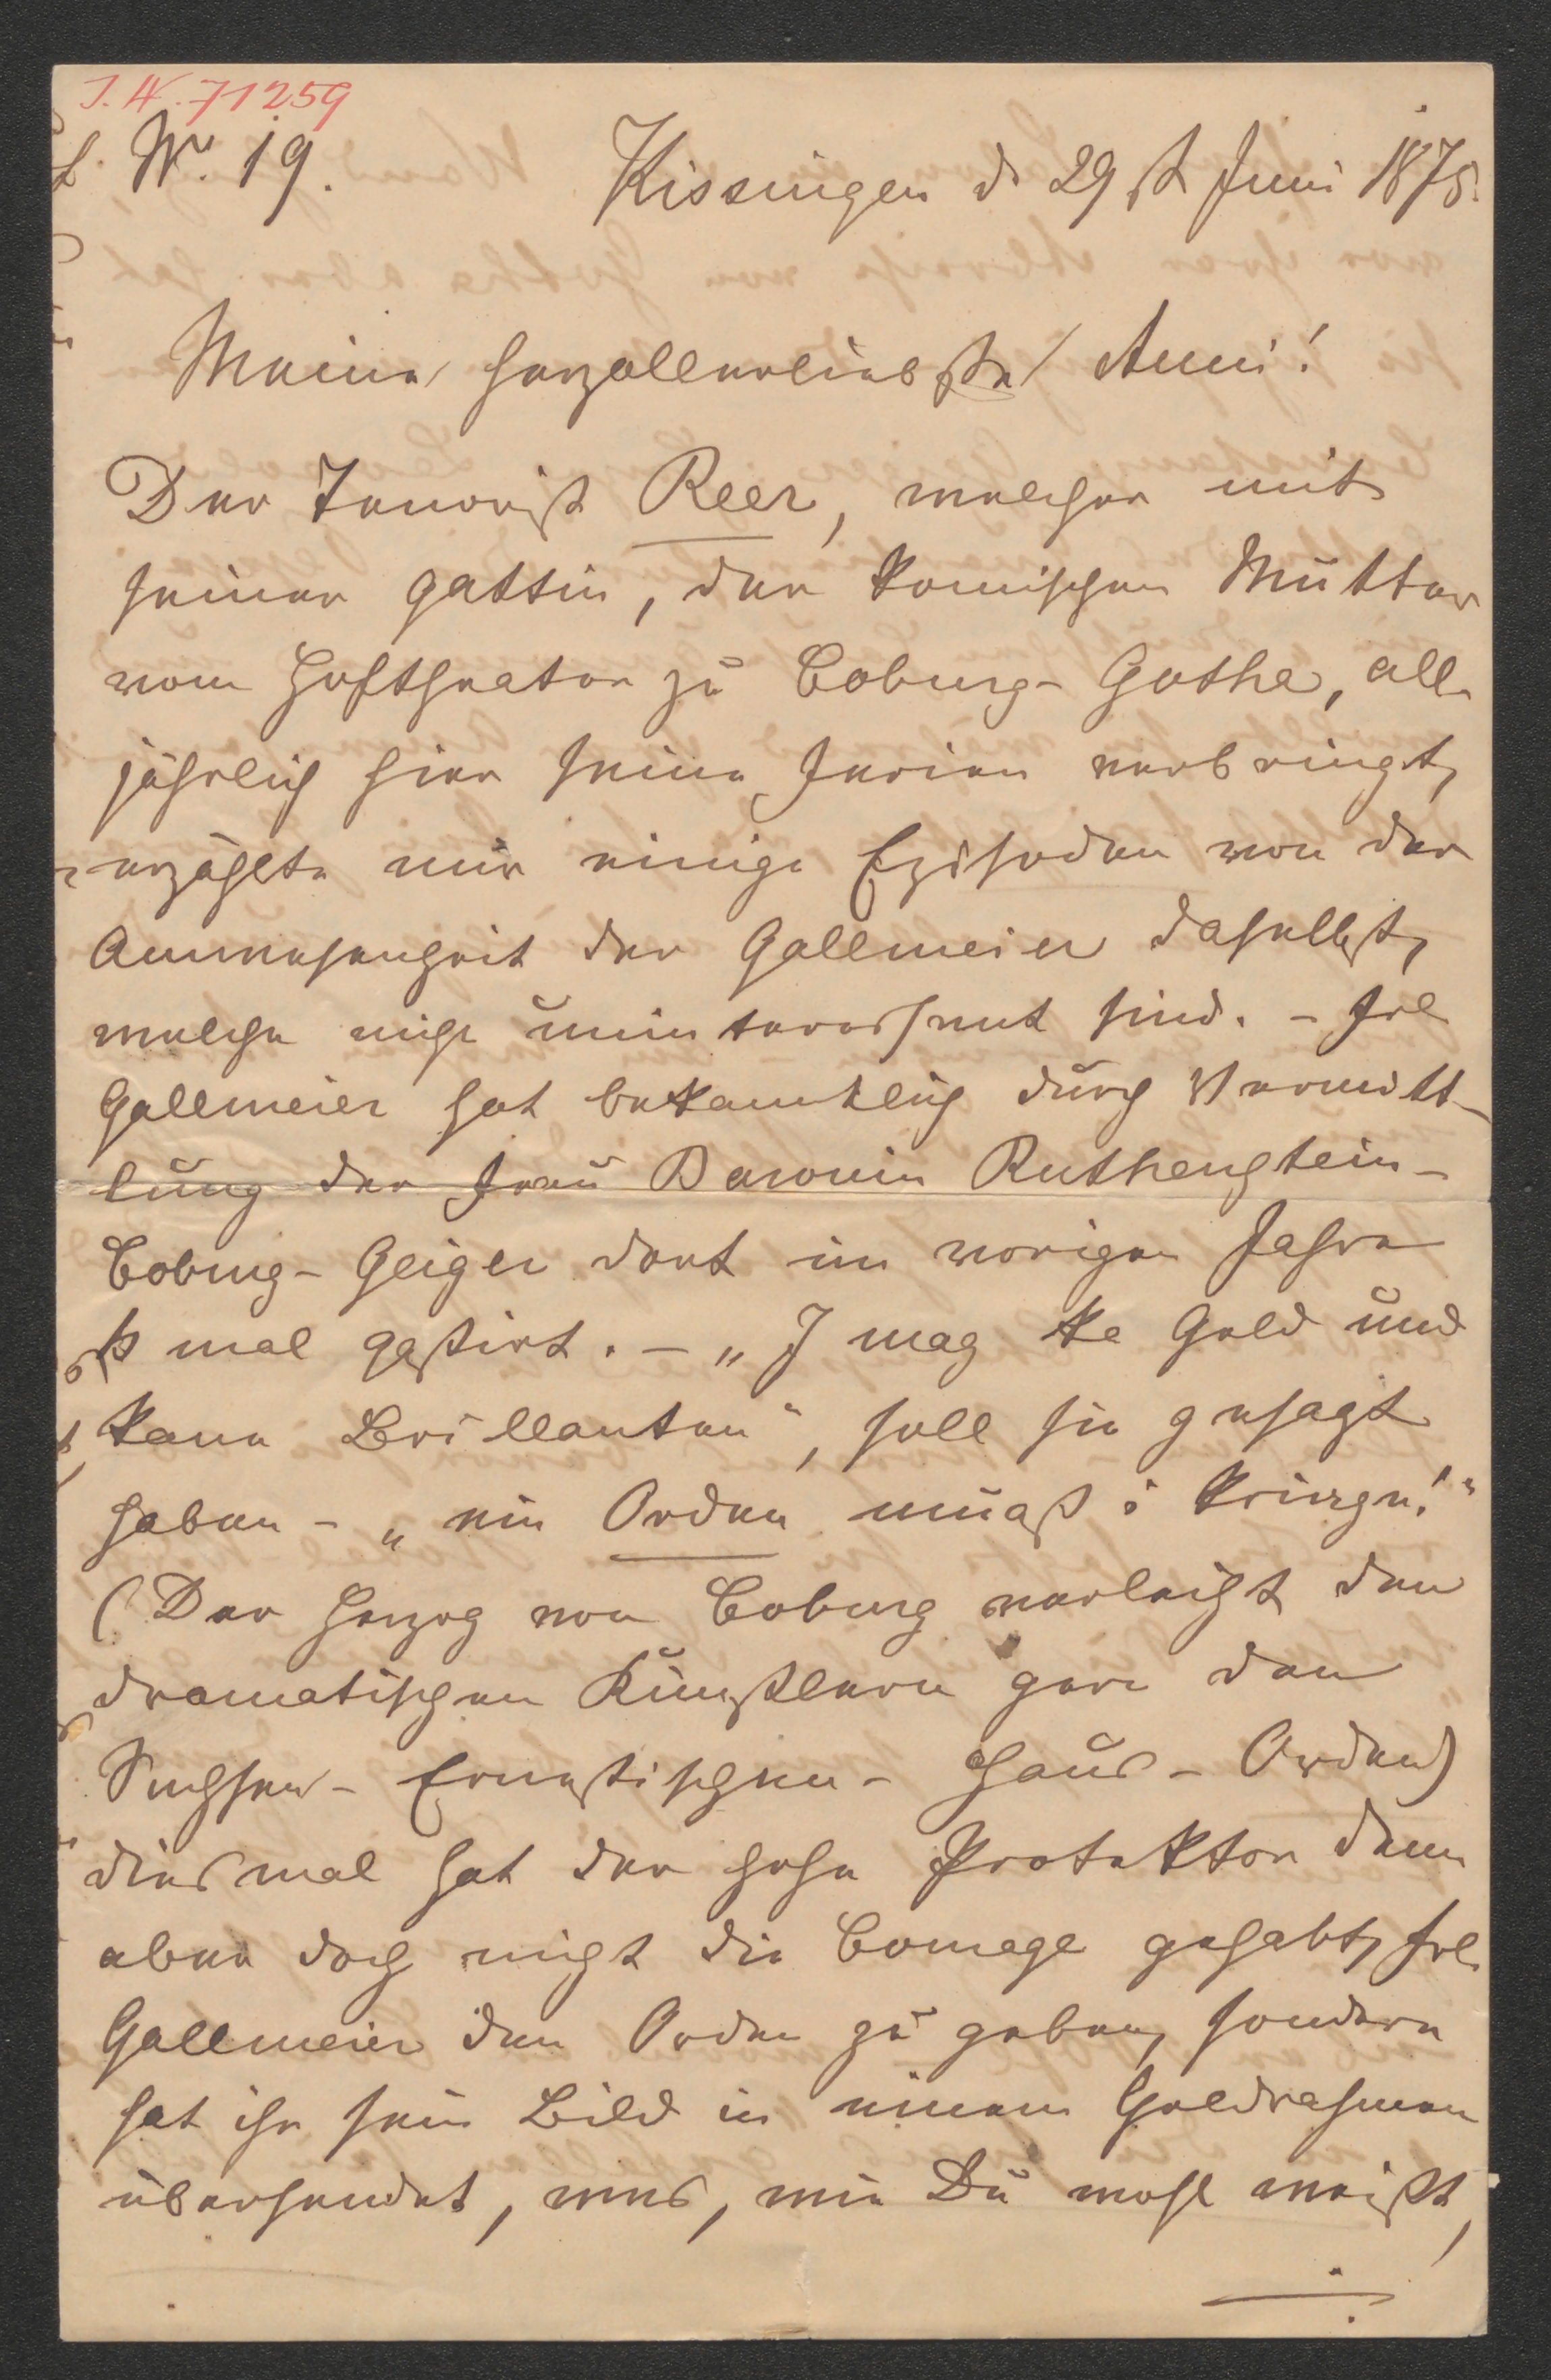 I. N. 71259
No. 19.
Kissingen d 29 st Juni 1878.
Meine herzallerliebste Anni!
Der Tenorist Reer, welcher mit
seiner Gattin, der komischen Mutter
vom Hoftheater zu Coburg-Gotha, all-
jährlich hier seine Ferien verbringt,
erzählte mir einige Episoden von der
Anwesenheit der Gallmeier daselbst,
welche nicht uninteressant sind. - Frl
Gallmeier hat bekanntlich durch Vermitt-
lung der Frau Baronin Ruthenstein-
Coburg-Geiger dort im vorigen Jahre
mal gastirt. - „I mag ka Geld und
kane Brillanten", soll sie gesagt
haben - „ein Orden muaß i kriegn!"
(Der Herzog von Coburg verleiht den
dramatischen Künstlern gern den
Sachsen-Ernestischen-Haus-Orden)
diesmal hat der hohe Protektor denn
aber doch nicht die Courage gehabt, Frl.
Gallmeier den Orden zu geben, sondern
hat ihr sein Bild in einem Goldrahmen
übersendet, was, wie Du wohl weißt,